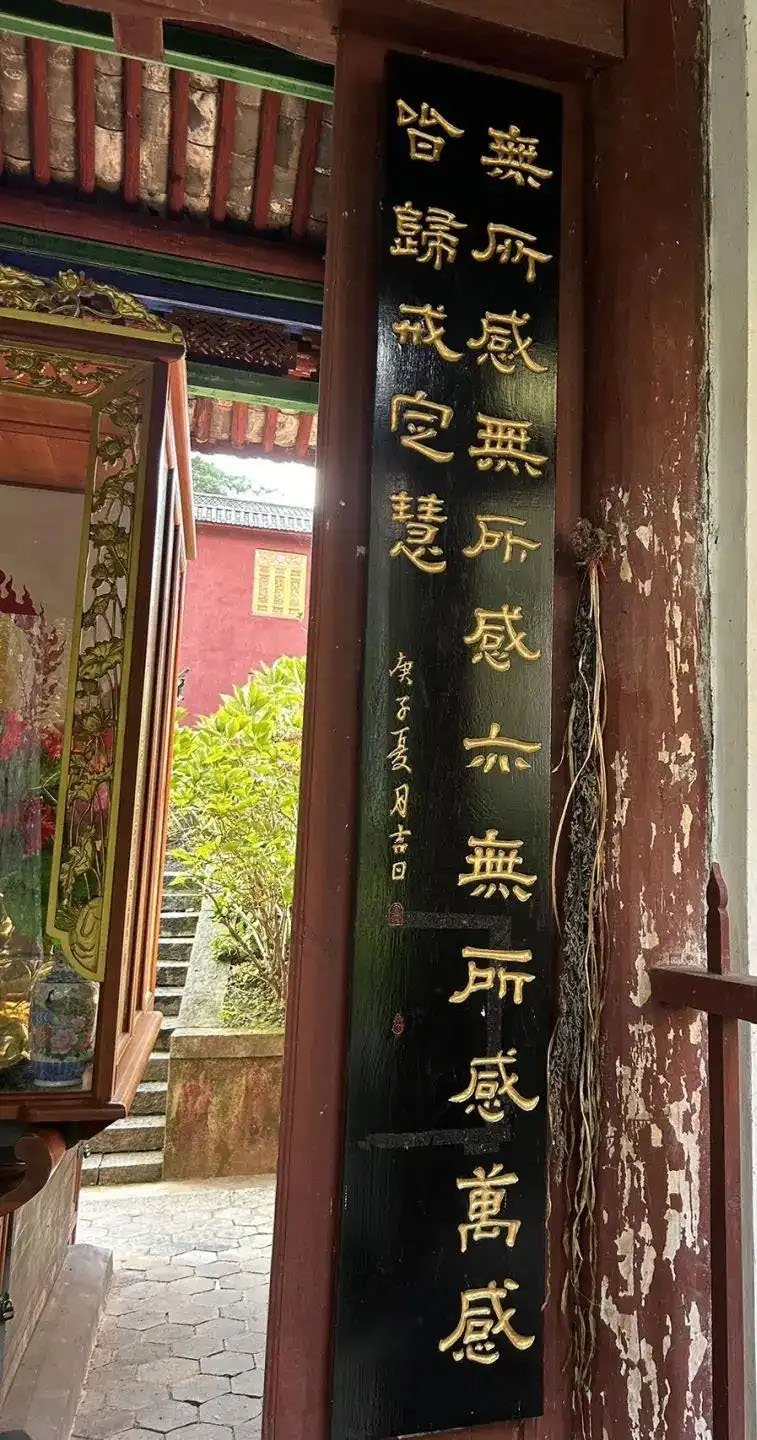 無所感無所感亦無所感萬感
皆歸戒定慧
庚子夏月吉日